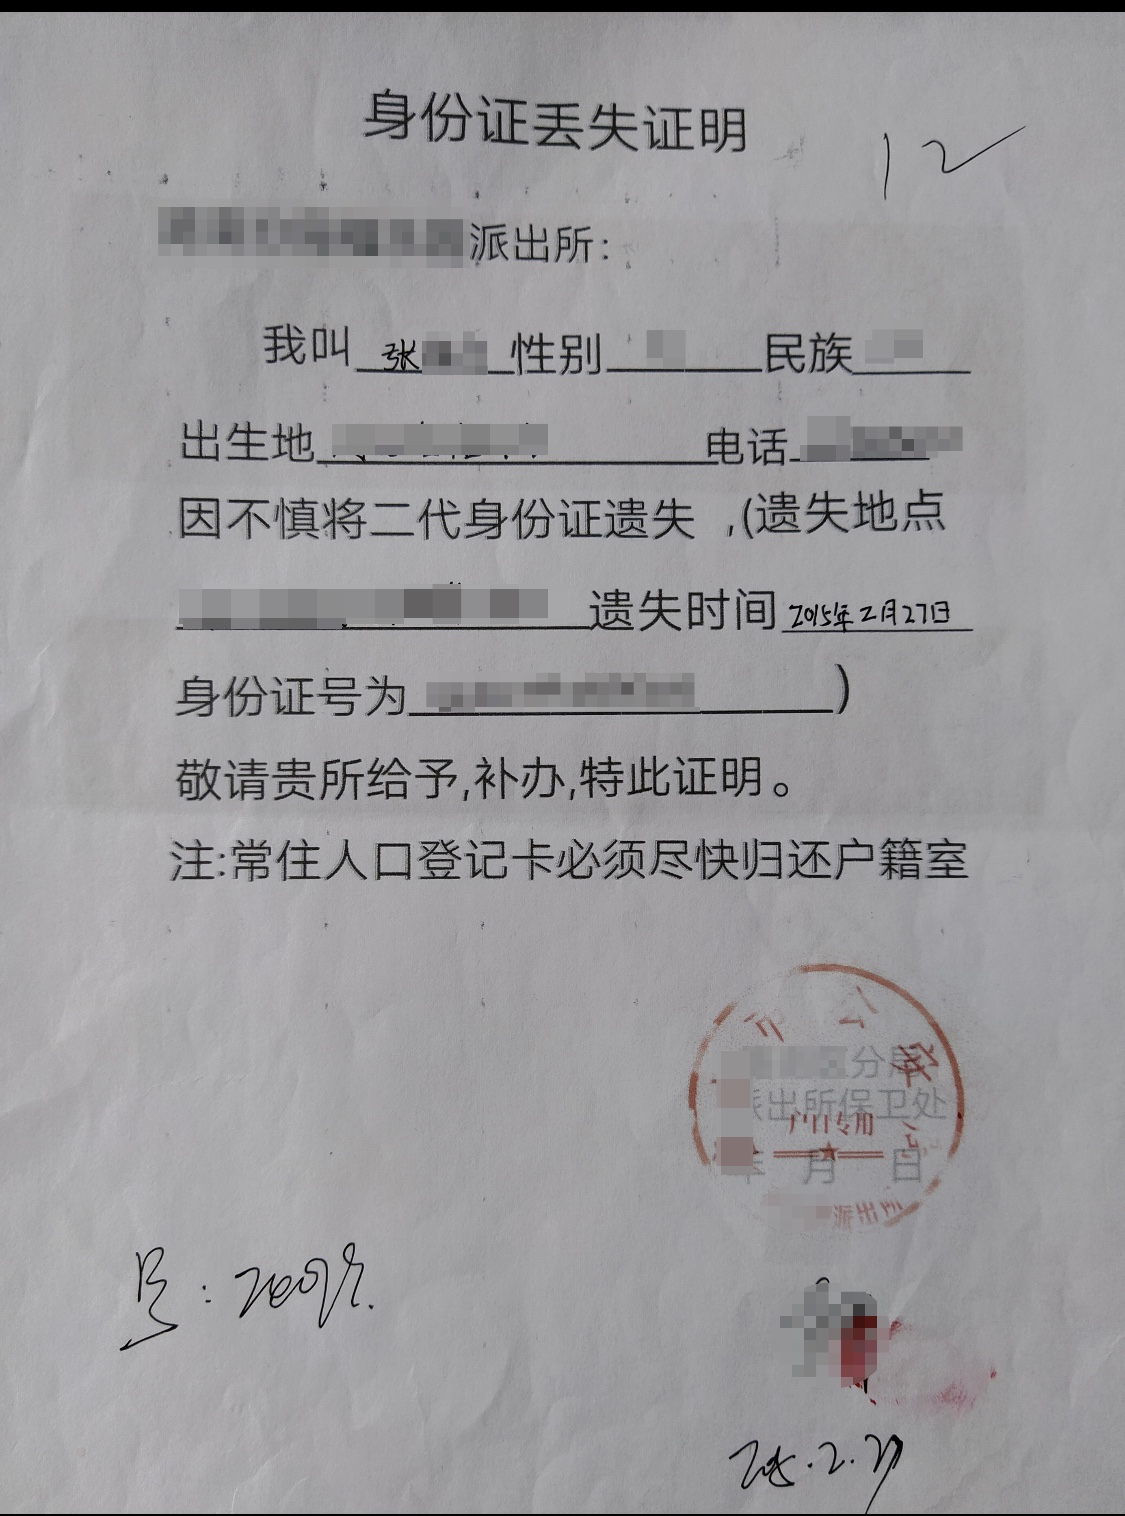 身份证丢失证明
12
派出所:
我叫 张 性别 民族
出生地 电话
因不慎将二代身份证遗失 ,(遗失地点
遗失时间 2015年2月27日
身份证号为 )
敬请贵所给予,补办,特此证明。
注:常住人口登记卡必须尽快归还户籍室
公安
分局
派出所保卫处
户口专用
年 月 日
派出所
2015.2.27